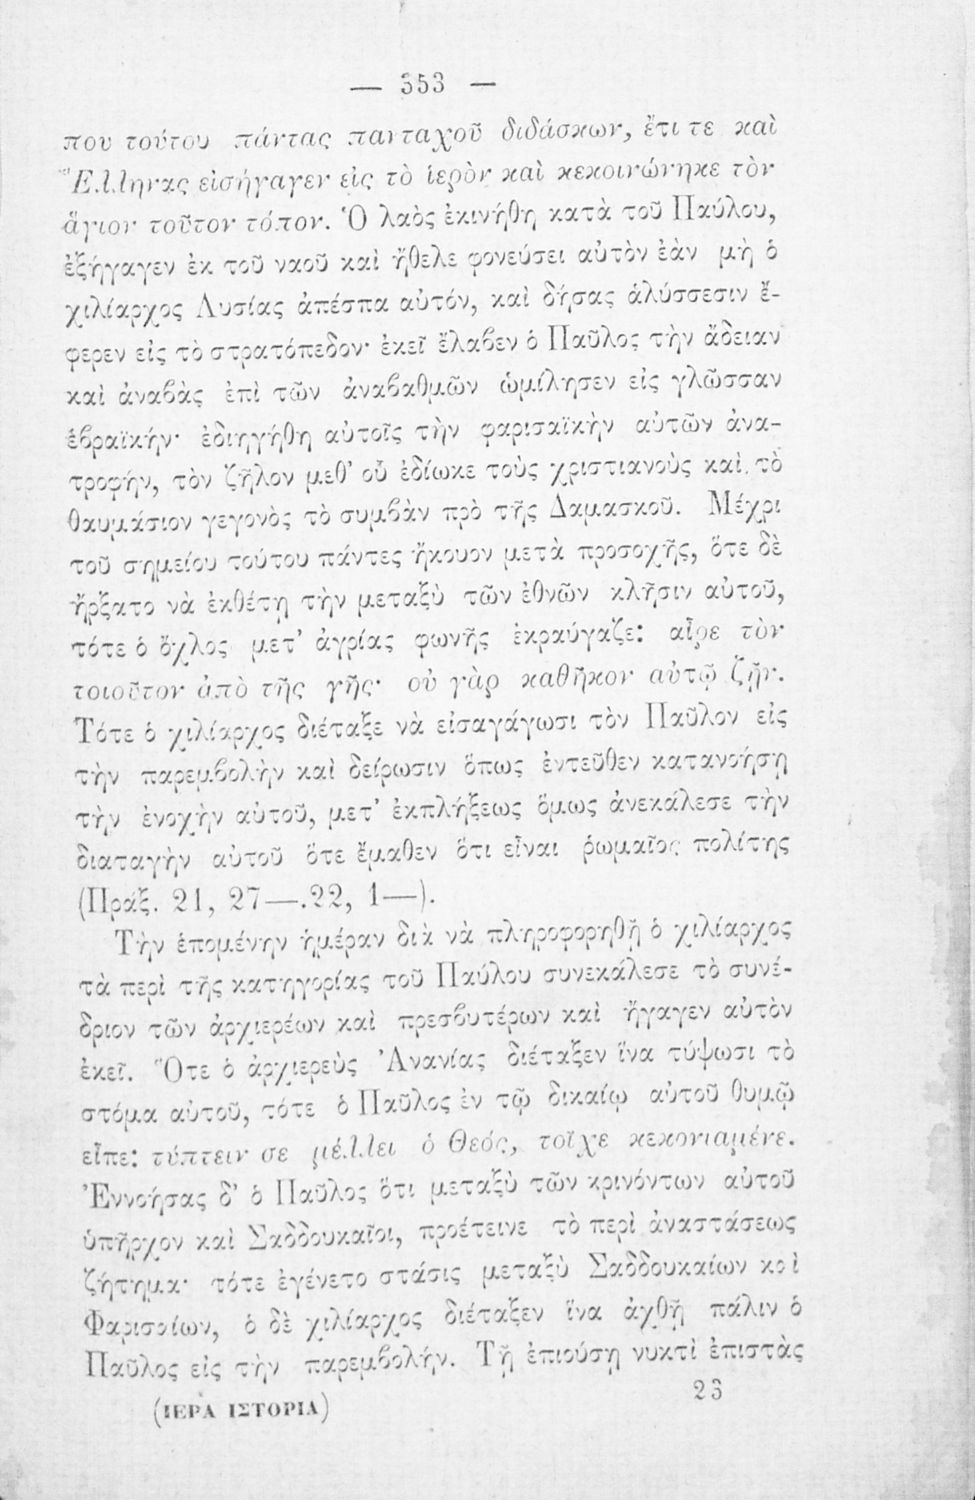 — 353 —
που τούτου πάντας πανταχοῦ διδάσκων, ἔτι τε καὶ
Ἕλληνας εἰσήγαγεν εἰς τὸ ἱερὸν καὶ κεκοινώνηκε τὸν
ἅγιον τοῦτον τόπον. Ὁ λαὸς ἐκινήθη κατὰ τοῦ Παύλου,
ἐξήγαγεν ἐκ τοῦ ναοῦ καὶ ἤθελε φονεύσει αὐτὸν ἐὰν μὴ ὁ
χιλίαρχος Λυσίας ἀπέσπα αὐτόν, καὶ δήσας ἁλύσσεσιν ἔ-
φερεν εἰς τὸ στρατόπεδον· ἐκεῖ ἔλαβεν ὁ Παῦλος τὴν ἄδειαν
καὶ ἀναβὰς ἐπὶ τῶν ἀναβαθμῶν ὡμίλησεν εἰς γλῶσσαν
ἑβραϊκήν· ἐδιηγήθη αὐτοῖς τὴν φαρισαϊκὴν αὐτῶν ἀνα-
τροφήν, τὸν ζῆλον μεθ’ οὗ ἐδίωκε τοὺς χριστιανοὺς καὶ τὸ
θαυμάσιον γεγονὸς τὸ συμβὰν πρὸ τῆς Δαμασκοῦ. Μέχρι
τοῦ σημείου τούτου πάντες ἤκουον μετὰ προσοχῆς, ὅτε δὲ
ἤρξατο νὰ ἐκθέτῃ τὴν μεταξὺ τῶν ἐθνῶν κλῆσιν αὐτοῦ,
τότε ὁ ὄχλος μετ’ ἀγρίας φωνῆς ἐκραύγαζε: αἶρε τὸν
τοιοῦτον ἀπὸ τῆς γῆς· οὐ γὰρ καθῆκον αὐτῷ ζῆν.
Τότε ὁ χιλίαρχος διέταξε νὰ εἰσαγάγωσι τὸν Παῦλον εἰς
τὴν παρεμβολὴν καὶ δείρωσιν ὅπως ἐντεῦθεν κατανοήσῃ
τὴν ἐνοχὴν αὐτοῦ, μετ’ ἐκπλήξεως ὅμως ἀνεκάλεσε τὴν
διαταγὴν αὐτοῦ ὅτε ἔμαθεν ὅτι εἶναι ῥωμαῖος πολίτης
(Πράξ. 21, 27—.22, 1—).
Τὴν ἑπομένην ἡμέραν διὰ νὰ πληροφορηθῇ ὁ χιλίαρχος
τὰ περὶ τῆς κατηγορίας τοῦ Παύλου συνεκάλεσε τὸ συνέ-
δριον τῶν ἀρχιερέων καὶ πρεσβυτέρων καὶ ἤγαγεν αὐτὸν
ἐκεῖ. Ὅτε ὁ ἀρχιερεὺς Ἀνανίας διέταξεν ἵνα τύψωσι τὸ
στόμα αὐτοῦ, τότε ὁ Παῦλος ἐν τῷ δικαίῳ αὐτοῦ θυμῷ
εἶπε: τύπτειν σε μέλλει ὁ Θεός, τοῖχε κεκονιαμένε.
Ἐννοήσας δ’ ὁ Παῦλος ὅτι μεταξὺ τῶν κρινόντων αὐτοῦ
ὑπῆρχον καὶ Σαδδουκαῖοι, προέτεινε τὸ περὶ ἀναστάσεως
ζήτημα· τότε ἐγένετο στάσις μεταξὺ Σαδδουκαίων καὶ
Φαρισαίων, ὁ δὲ χιλίαρχος διέταξεν ἵνα ἀχθῇ πάλιν ὁ
Παῦλος εἰς τὴν παρεμβολήν. Τῇ ἐπιούσῃ νυκτὶ ἐπιστὰς
(ΙΕΡΑ ΙΣΤΟΡΙΑ) 23